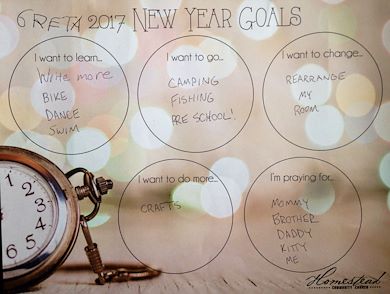 GRETA 2017 NEW YEAR GOALS
I want to learn...
Write more
BIKE
DANCE
SWIM
I want to go...
CAMPING
FISHING
PRE SCHOOL!
I want to change...
REARRANGE
MY
ROOM
I want to do more...
CRAFTS
I'm praying for...
MOMMY
BROTHER
DADDY
KITTY
ME
12
1
2
3
4
5
Homestead